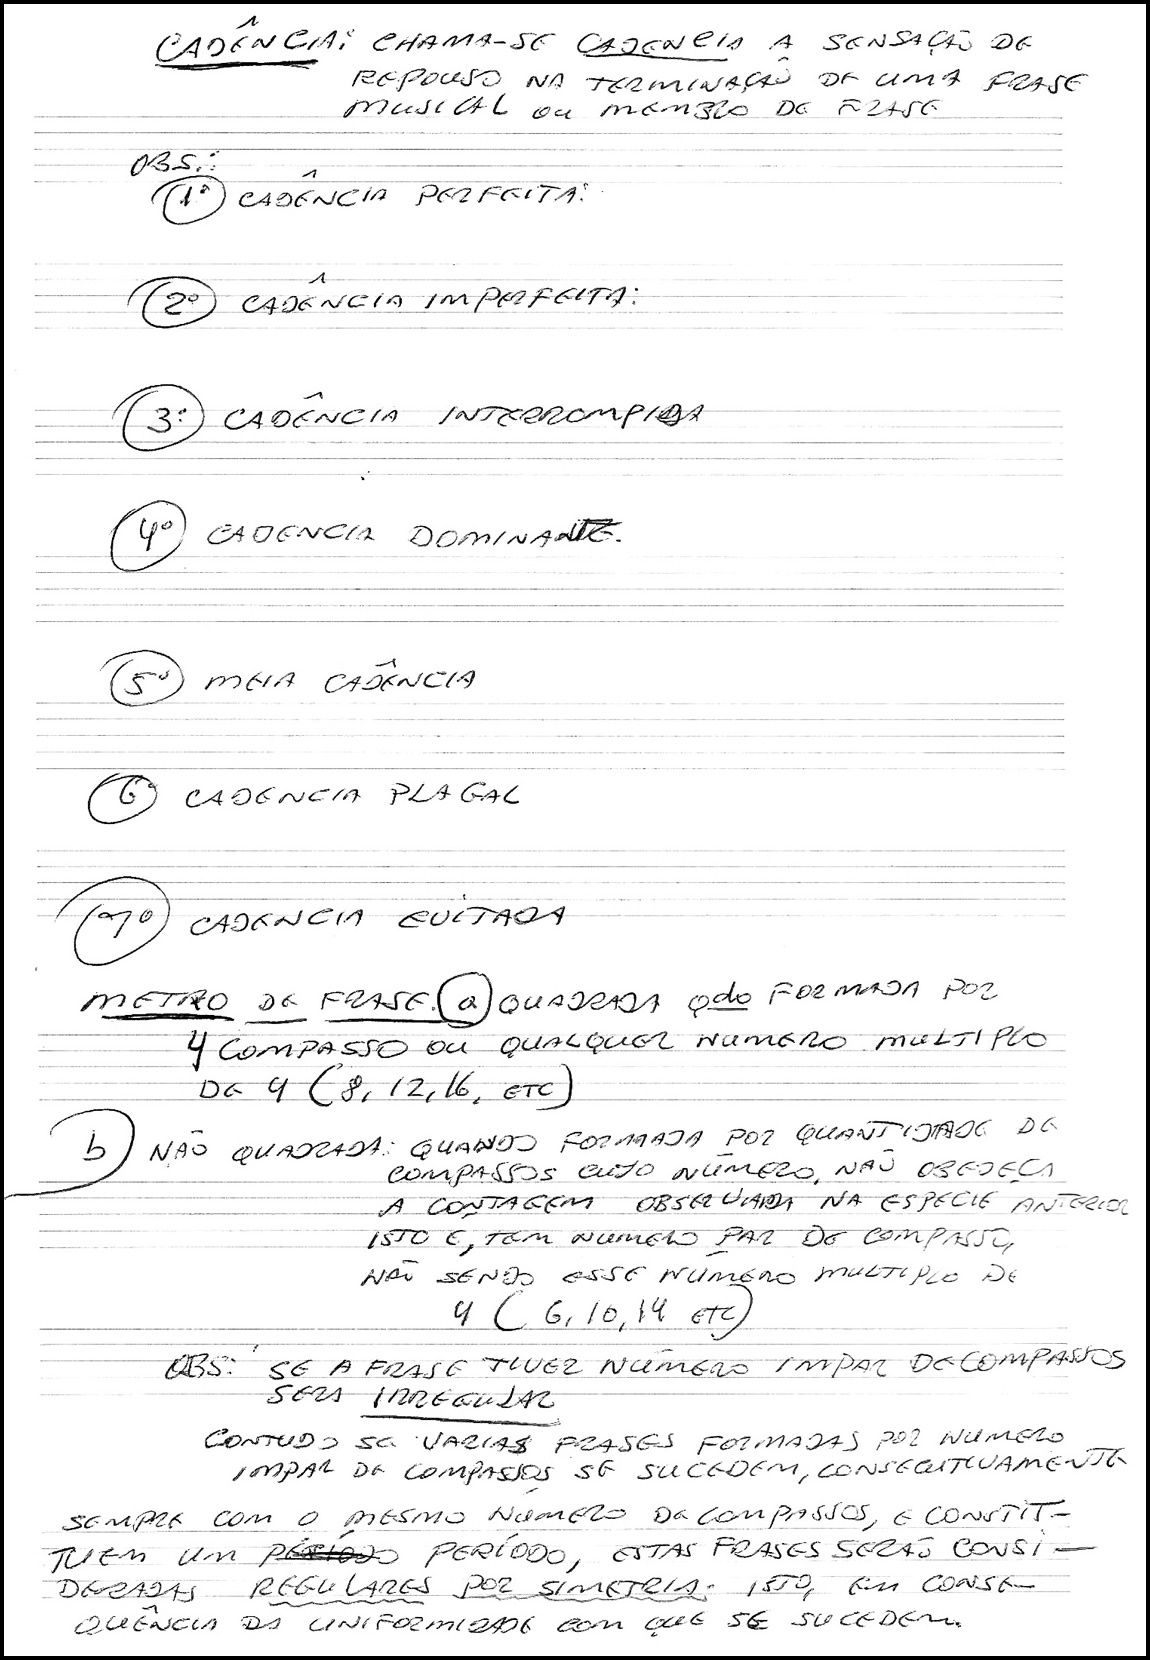 CADÊNCIA: CHAMA-SE CADENCIA A SENSAÇÃO DE
REPOUSO NA TERMINAÇÃO DE UMA FRASE
MUSICAL OU MEMBRO DE FRASE
OBS.:
1º CADÊNCIA PERFEITA:
2º CADÊNCIA IMPERFEITA:
3º CADÊNCIA INTERROMPIDA
4º CADENCIA DOMINANTE.
5º MEIA CADÊNCIA
6º CADENCIA PLAGAL
7º CADENCIA EVITADA
METRO DE FRASE. a) QUADRADA qdo FORMADA POR
4 COMPASSO OU QUALQUER NUMERO MULTIPLO
DE 4 (8, 12, 16, ETC)
b) NÃO QUADRADA: QUANDO FORMADA POR QUANTIDADE DE
COMPASSOS CUJO NÚMERO, NÃO OBEDEÇA
A CONTAGEM OBSERVADA NA ESPECIE ANTERIOR
ISTO E, TEM NUMERO PAR DE COMPASSO,
NÃO SENDO ESSE NÚMERO MULTIPLO DE
4 (6, 10, 14 ETC)
OBS: SE A FRASE TIVER NÚMERO IMPAR DE COMPASSOS
SERA IRREGULAR
CONTUDO SE VARIAS FRASES FORMADAS POR NUMERO
IMPAR DE COMPASSOS SE SUCEDEM, CONSECUTIVAMENTE
SEMPRE COM O MESMO NÚMERO DE COMPASSOS, E CONSTIT-
TUEM UM PERÍODO PERÍODO, ESTAS FRASES SERÃO CONSI-
DERADAS REGULARES POR SIMETRIA. ISTO, EM CONSE-
QUÊNCIA DA UNIFORMIDADE COM QUE SE SUCEDEM.